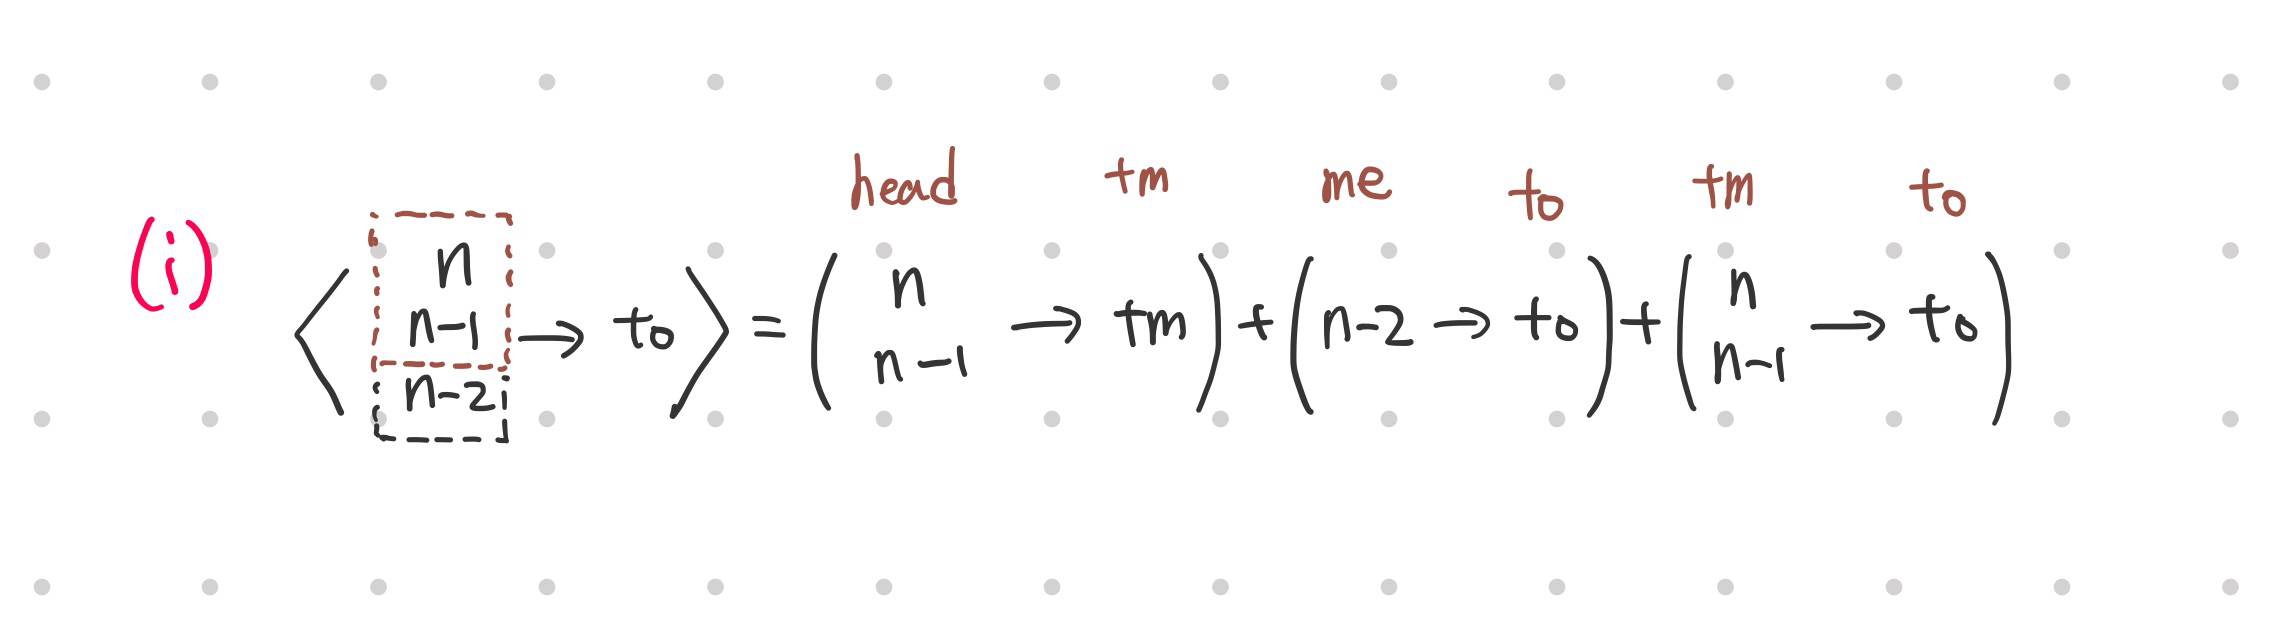 head tm me to tm to
(i) ⟨ n n-1 n-2 → to ⟩ = ( n n-1 → tm ) + ( n-2 → to ) + ( n n-1 → to )